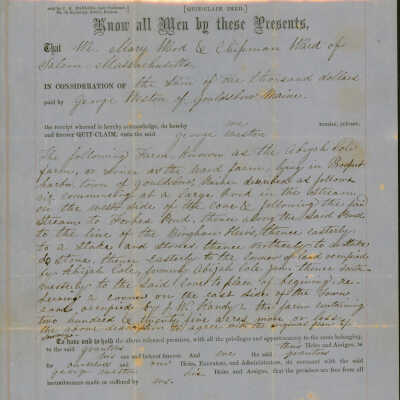 [QUIT-CLAIM DEED.]
Know all Men by these Presents,
That We Mary Ward & Chipman Ward of
Salem Massachusetts
IN CONSIDERATION of the sum of one thousand dollars
paid by George Weston of Gouldsboro Maine
the receipt whereof is hereby acknowledge, do hereby we remise, release,
and forever QUIT-CLAIM, unto the said George Weston
The following Farm, known as the Abijah Cole
farm, or known as the Ward farm, lying in Prospect
harbor town of Gouldsboro, Maine described as follows
viz commencing at a large rock in the stream
on the west side of the Cove & following the said
Stream to Forbes Pond, thence along the said Pond
to the line of the Bingham Heirs, thence easterly
to a Stake and Stones thence northerly to a Stake
& Stone, thence easterly to the corner of land occupied
by Abijah Cole, formerly Abijah Cole jun. thence south
westerly to the said first place of begining, re-
serving a corner on the east side of the town
road occupied by J. W. Handy & the farm containing
two hundred & twenty five acres more or less,
the above description to agree with the original plan of
To have and to hold the above released premises, with all the privileges and appurtenances to the same belonging,
to the said grantors their Heirs and Assigns, to
their use and behoof forever. And we the said grantors
for ourselves and our Heirs, Executors, and Administrators, do covenant with the said
George Weston his Heirs and Assigns, that the premises are free from all
incumbrances made or suffered by us.